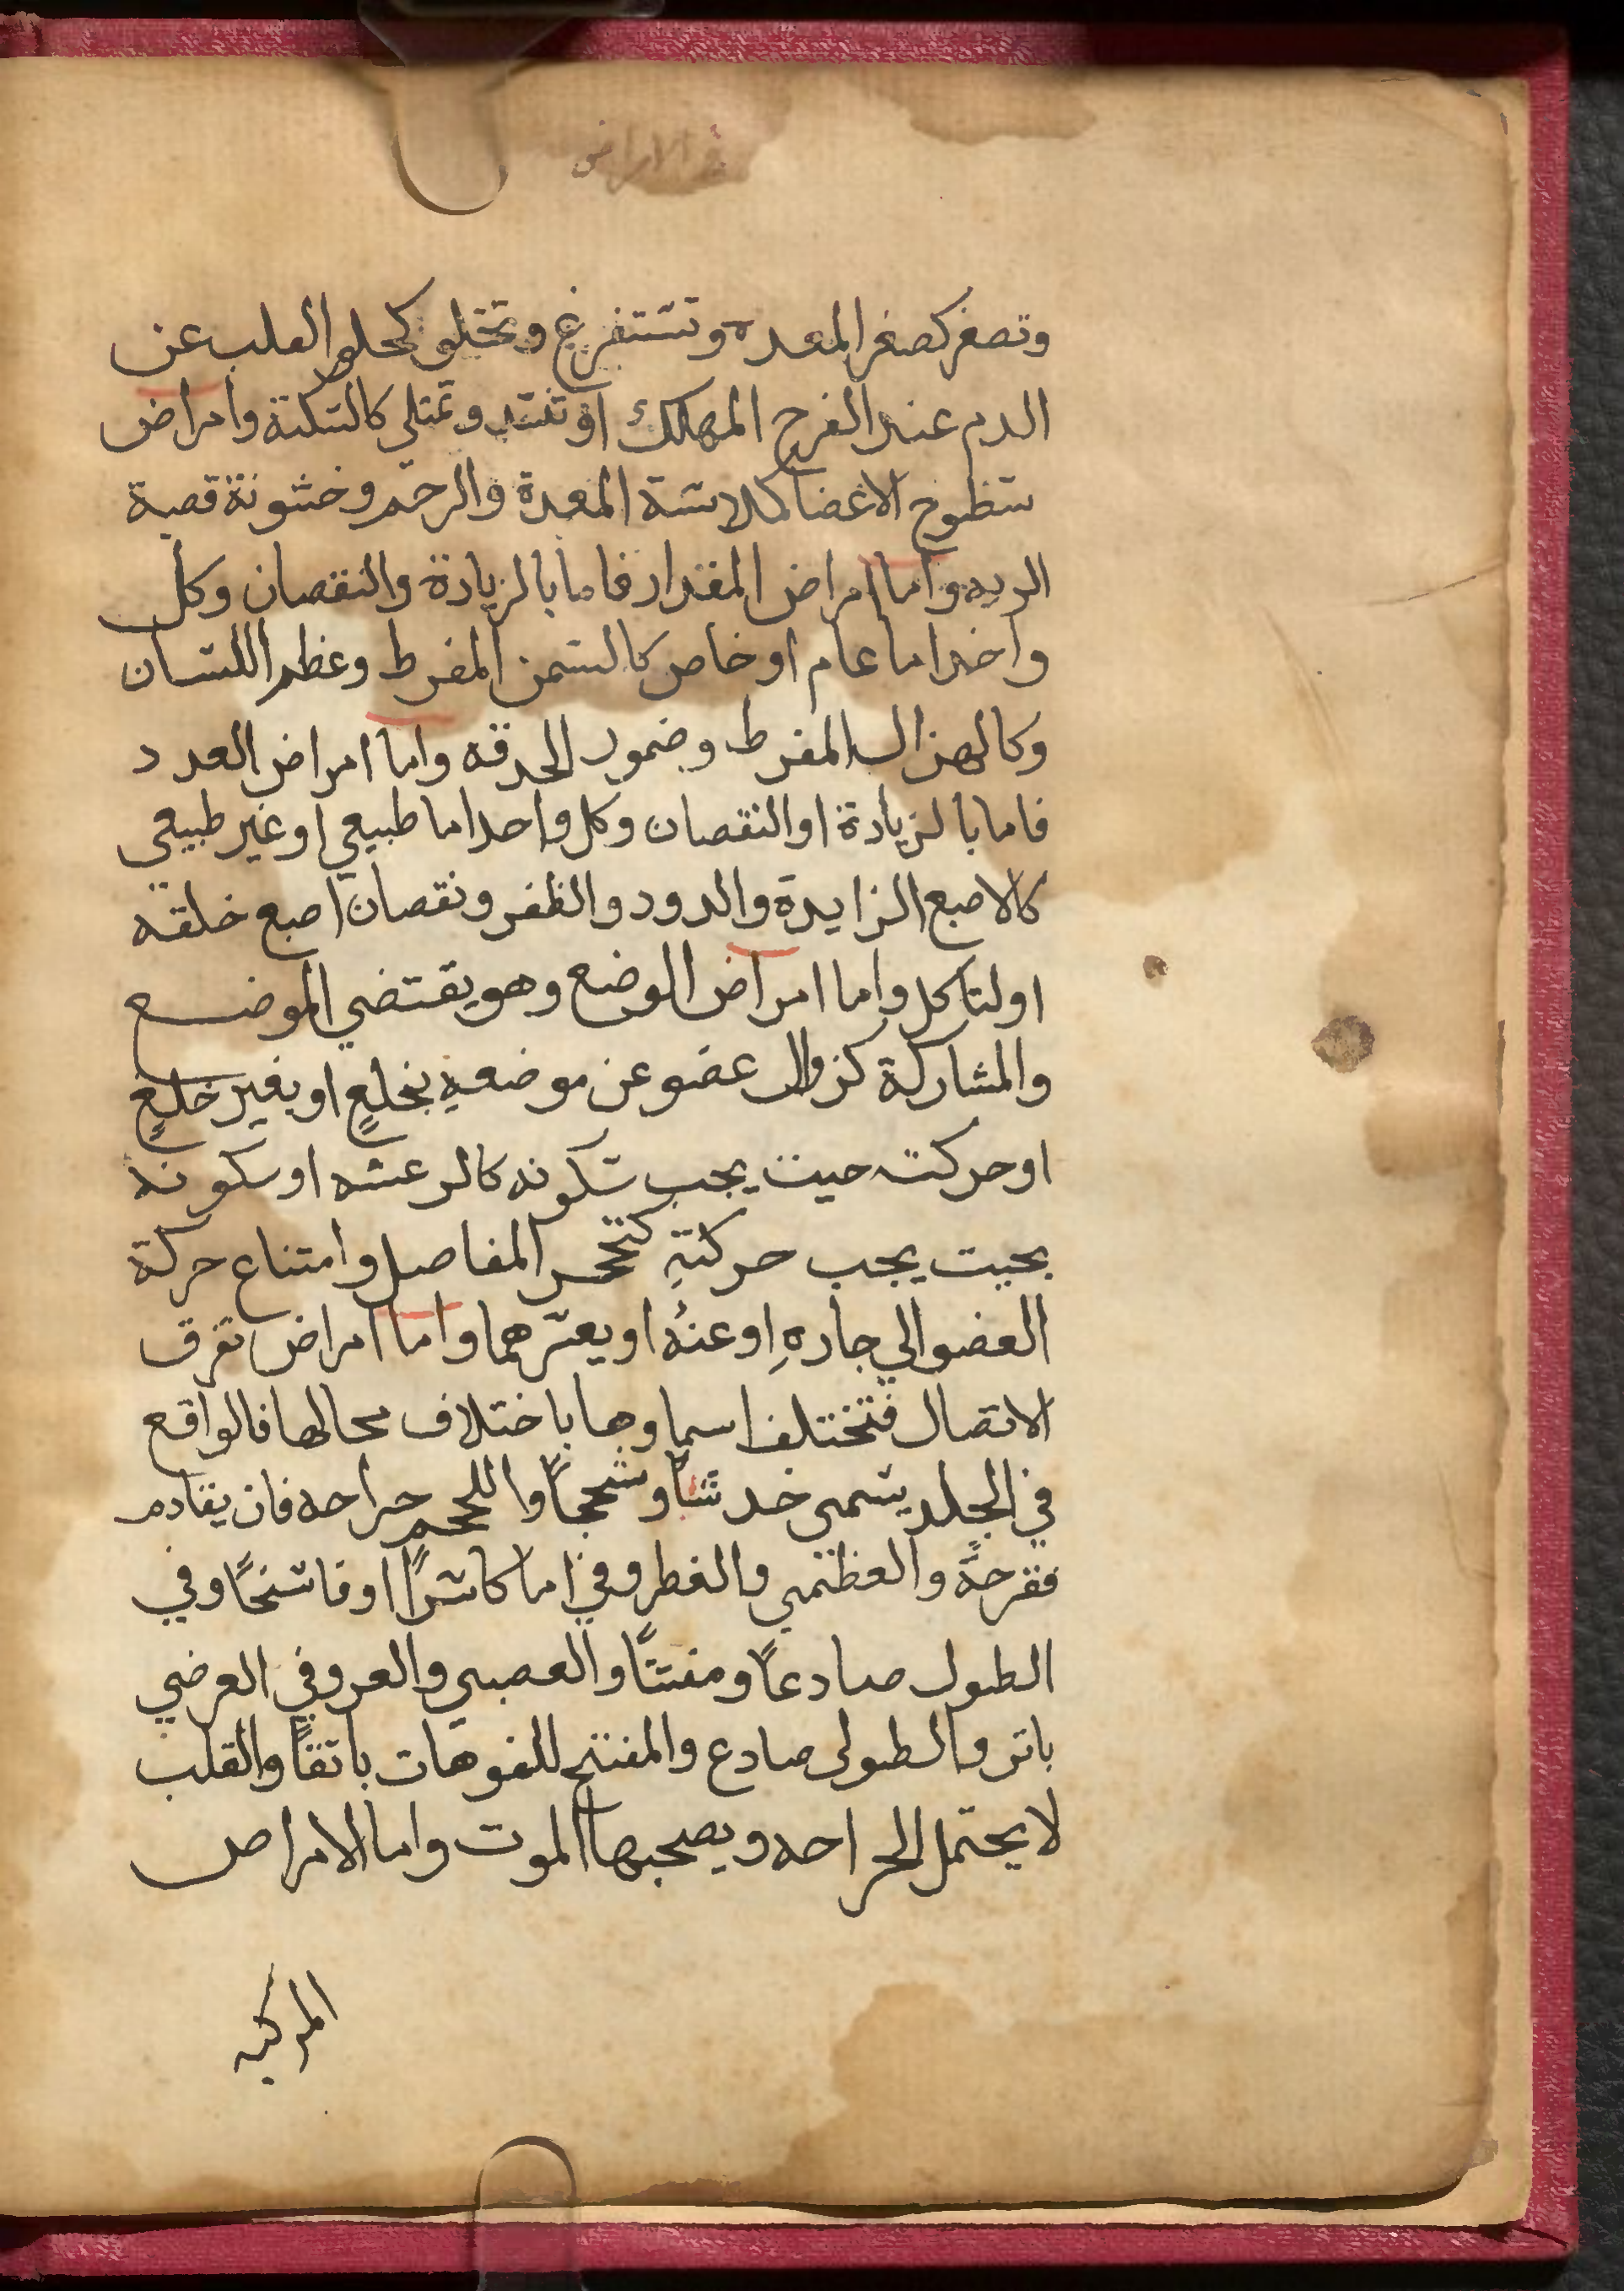 في الامراض
وتصغر كصغر المعده وتستفرغ وتخلو كخلو القلب عن
الدم عند الفرح المهلك او تنسد وتمتلي كالسكتة وامراض
سطوح الاعضا كملاسة المعدة والرحم وخشونة قصبة
الريه واما امراض المقدار فاما بالزيادة والنقصان وكل
واحد اما عام او خاص كالسمن المفرط وعظم اللسان
وكالهزال المفرط وضمور الحدقه واما امراض العدد
فاما بالزيادة او النقصان وكل واحد اما طبيعي او غير طبيعي
كالاصبع الزايدة والدود والظفر ونقصان اصبع خلقه
او لتاكل واما امراض الوضع وهو يقتضي الموضع
والمشاركة كزوال عضو عن موضعهِ بخلعٍ او بغير خلعٍ
او حركته حيث يجب سكونه كالرعشه او سكونه
بحيت يجب حركتهِ كتحجر المفاصل وامتناع حركة
العضو الي جارهِ او عنهُ او يعسرهما واما امراض تفرق
الاتصال فتختلف اسماوها باختلاف محالها فالواقع
في الجلد يسمى خدشاً وسحجاً واللحم جراحه فان يقادم
فقرحةً والعظمي والغطروفي اما كاسراً او فاسخاً وفي
الطول صادعاً ومفتتاً والعصبي والعروفي العرضي
باتر والطولى صادع والمفتح للفوهات باتقاً والقلب
لا يحتمل الجراحه ويصحبها الموت واما الامراض
المركبه